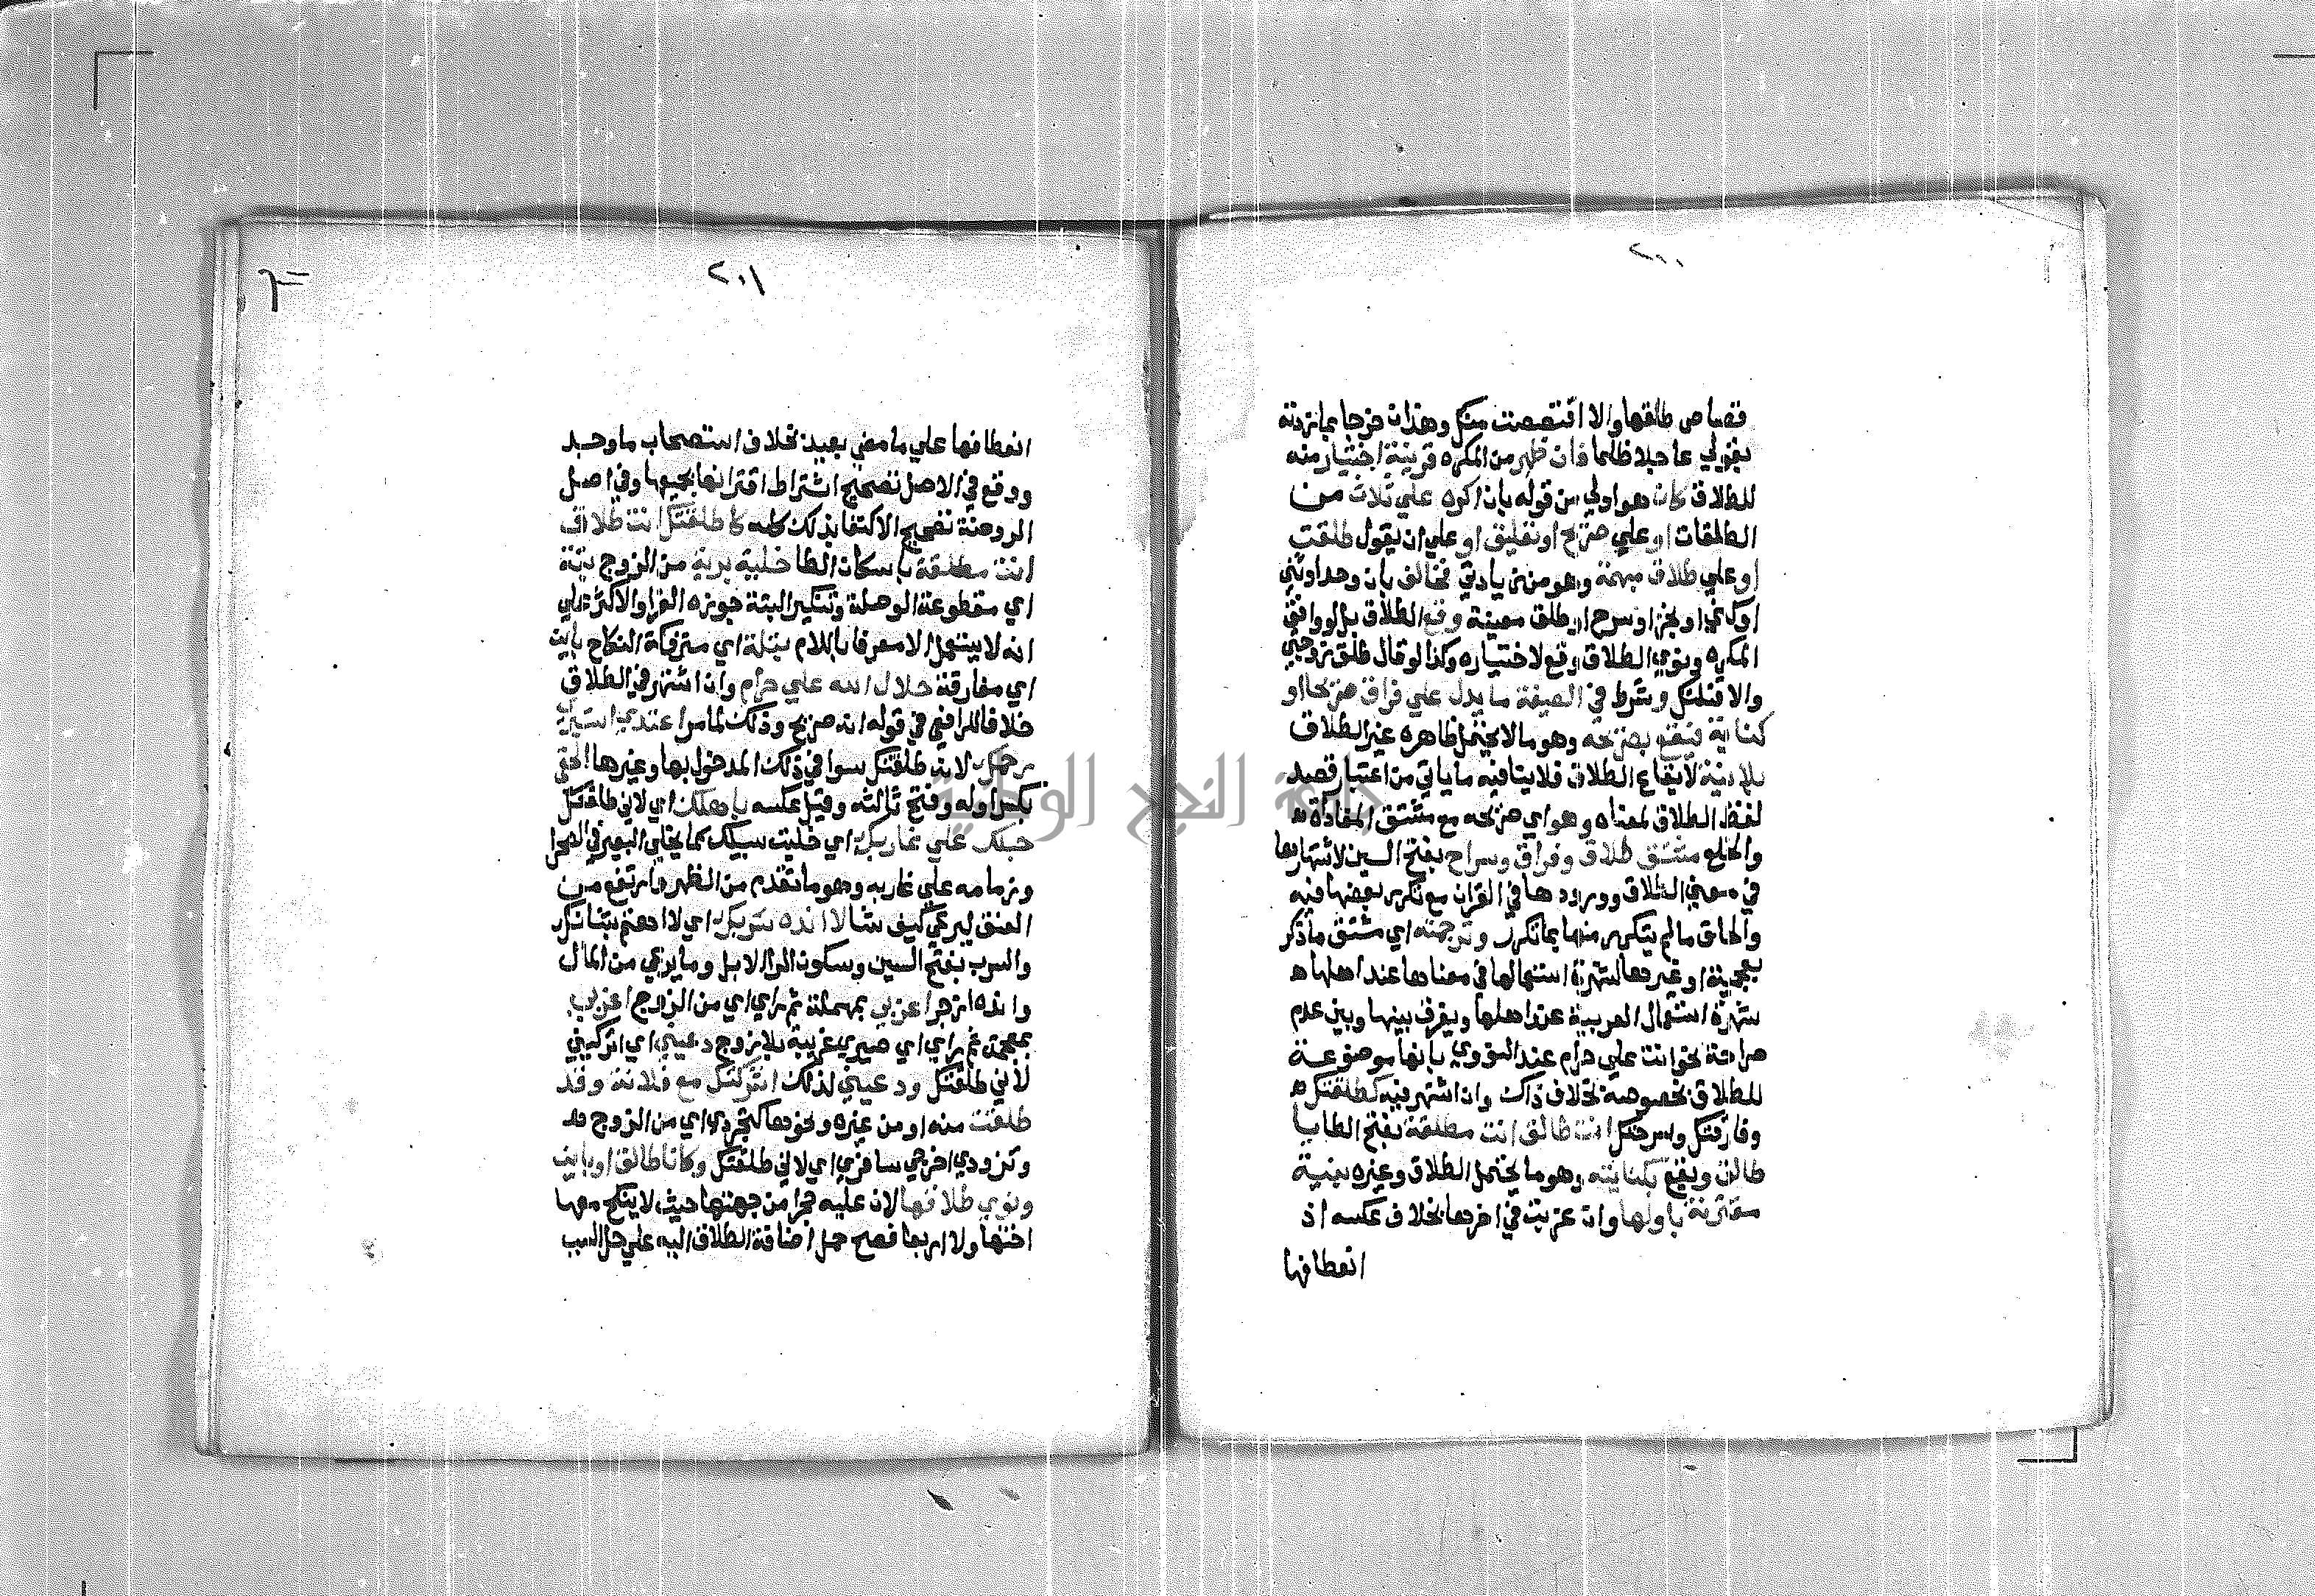 ٢٠٠
قصاص طلقها والا اقتصصت منك وهذان خرجا بما زدته
بقولي عاجلا ظلما فان ظهر من المكره قرينة اختيار منه
للطلاق كان هو اولي من قوله بان اكره علي ثلاث من
الطلقات او علي صريح او تعليق او علي ان يقول طلقت
او علي طلاق مبهمة وهو من زيادتي فخالف بان وحد او ثني
او كني او نجز او سرح او طلق معينة وقع الطلاق بل لو وافق
المكره ونوي الطلاق وقع لاختياره وكذا لو قال طلق زوجتي
والا قتلتك وشرط في الصيغة ما يدل علي فراق صريحا او
كناية فيقع بصريحه وهو ما لا يحتمل ظاهره غير الطلاق
بلا نية لايقاع الطلاق فلا ينافيه ما ياتي من اعتبار قصد
لفظ الطلاق لمعناه وهو اي صريحه مع مشتق المفاداة
والخلع مشتق طلاق وفراق وسراح بفتح السين لاشتهارها
في معني الطلاق وورودها في القران مع تكرر بعضها فيه
والحاق ما لم يتكرر منها بما تكرر وترجمته اي مشتق ما ذكر
بعجمية او غيرها لشهرة استعمالها في معناها عند اهلها
شهرة استعمال العربية عند اهلها ويفرق بينها وبين عدم
صراحة نحو انت علي حرام عند النووي بانها موضوعة
للطلاق بخصوصه بخلاف ذاك وان اشتهر فيه كطلقتك
وفارقتك وسرحتك انت طالق انت مطلقة بفتح الطا يا
طالق ويقع بكنايته وهو ما يحتمل الطلاق وغيره بنية
مقترنة باولها وان عزبت في اخرها بخلاف عكسه اذ
انعطافها
٢٠١
انعطافها علي ما مضي بعيد بخلاف استصحاب ما وجد
ووقع في الاصل تصحيح اشتراط اقترانها بجميعها وفي اصل
الروضة تصحيح الاكتفا بذلك كله كاطلقتك انت طلاق
انت مطلقة باسكان الطا خلية برية من الزوج بتة
اي مقطوعة الوصلة وتنكير البتة جوزه الفرا والاكثر علي
انه لا يستعمل الا معرفا باللام بتلة اي متروكة النكاح باين
اي مفارقة حلال الله علي حرام وان اشتهر في الطلاق
خلافا للرافعي في قوله انه صريح وذلك لما مر اعتدي استبري
رحمك لانه طلقتك سوا في ذلك المدخول بها وغيرها الحقي
بكسر اوله وفتح ثالثه وقيل عكسه باهلك اي لاني طلقتك
حبلك علي غاربك اي خليت سبيلك كما يخلي البعير في الصحرا
وزمامه علي غاربه وهو ما تقدم من الظهر وارتفع من
العنق ليرعي كيف شا لا انده سربك اي لا اهتم بشانك
والسرب بفتح السين وسكون الرا الابل وما يرعي من المال
وانده ازجر اعزبي بمهملة ثم زاي اي من الزوج اغربي
بمعجمة ثم راي اي صيري غريبة بلا زوج دعيني اي اتركيني
لاني طلقتك ودعيني لذلك اشركتك مع فلانة وقد
طلقت منه او من غيره ونحوها كتجردي اي من الزوج
وتزودي اخرجي سافري اي لاني طلقتك وكانا طالق او باين
ونوي طلاقها لان عليه حجرا من جهتها حيث لا ينكح معها
اختها ولا اربعا فصح حمل اضافة الطلاق اليه علي حل السبب
جامعة النجاح الوطنية